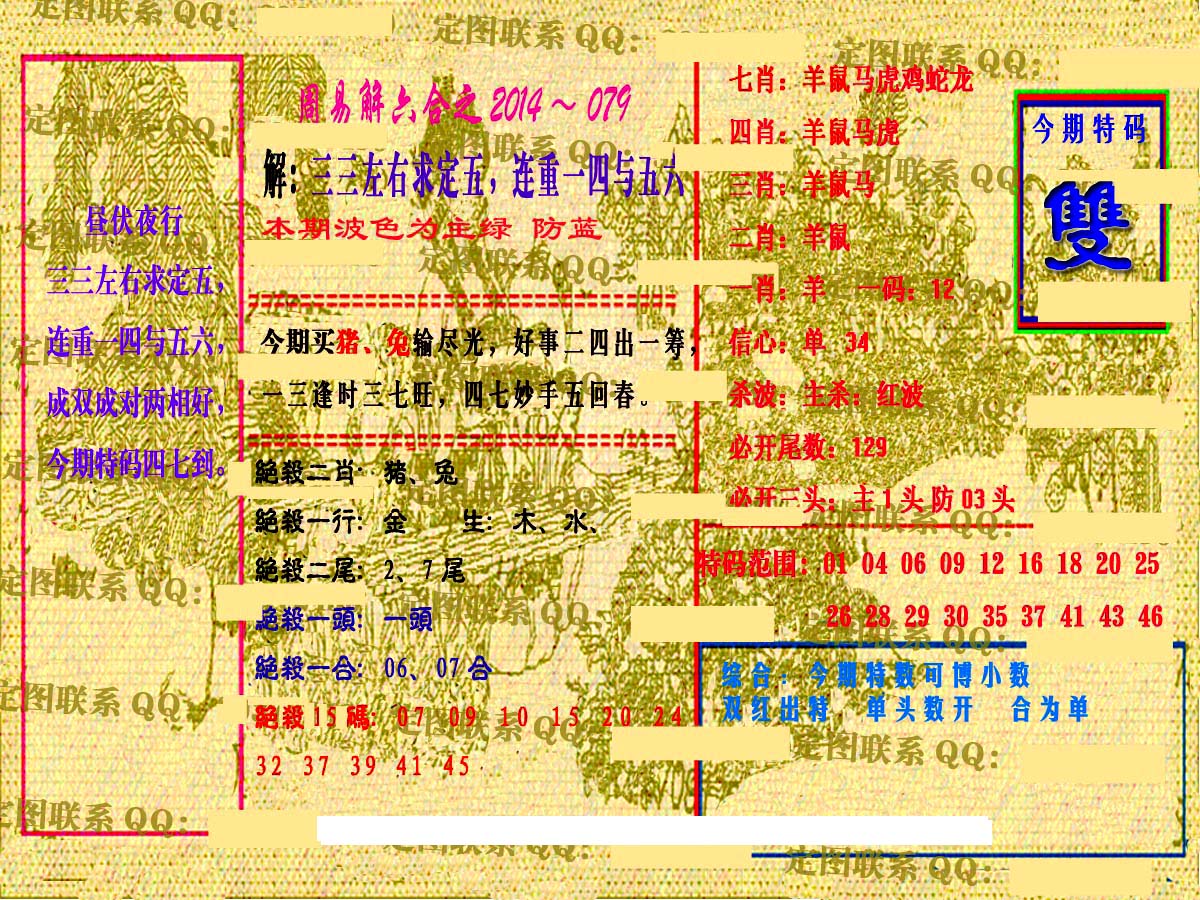 定图联系 QQ:
定图联系 QQ:
定图联系 QQ:
周易解六合之 2014 ~ 079
解: 三三左右求定五, 连重一四与五六
本期波色为主绿 防蓝
今期买猪、兔输尽光, 好事二四出一筹,
一三逢时三七旺, 四七妙手五回春。
昼伏夜行
三三左右求定五,
连重一四与五六,
成双成对两相好,
今期特码四七到。
絕殺二肖: 猪、兔
絕殺一行: 金 生: 木、水、
絕殺二尾: 2、7 尾
絕殺一頭: 一頭
絕殺一合: 06、07 合
絕殺 15 碼: 07 09 10 15 20 24
32 37 39 41 45
七肖: 羊鼠马虎鸡蛇龙
四肖: 羊鼠马虎
三肖: 羊鼠马
二肖: 羊鼠
一肖: 羊 一码: 12
信心: 单 34
杀波: 主杀: 红波
必开尾数: 129
必开三头: 主 1 头 防 03 头
今期特码
雙
特码范围: 01 04 06 09 12 16 18 20 25
26 28 29 30 35 37 41 43 46
综合: 今期特数可博小数
双红出特 单头数开 合为单
定图联系 QQ:
定图联系 QQ:
定图联系 QQ:
定图联系 QQ:
定图联系 QQ:
定图联系 QQ: